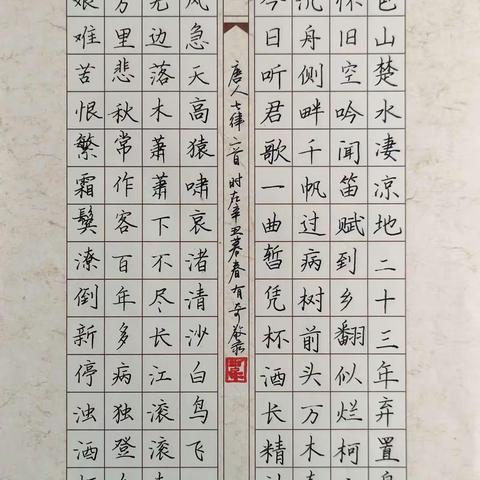 巴山楚水凄凉地二十三年弃置
怀旧空吟闻笛赋到乡翻似烂柯
沉舟侧畔千帆过病树前头万木
今日听君歌一曲暂凭杯酒长精
唐人七律二首 时在辛丑暮春有奇敬录
风急天高猿啸哀渚清沙白鸟飞
无边落木萧萧下不尽长江滚滚
万里悲秋常作客百年多病独登
艰难苦恨繁霜鬓潦倒新停浊酒